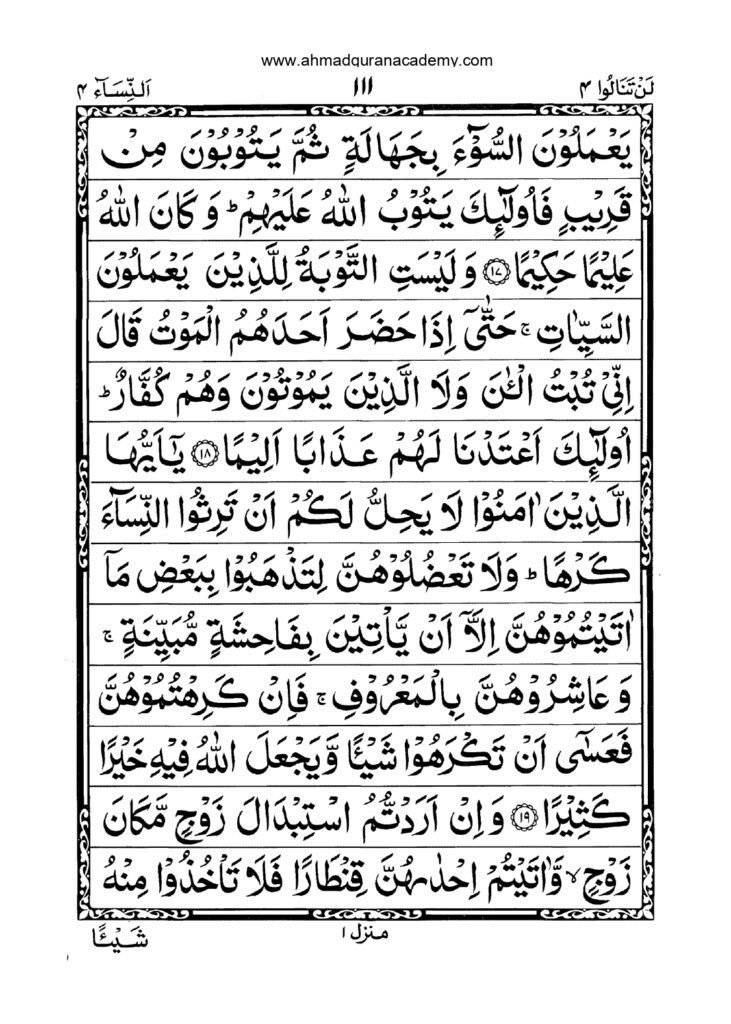 www.ahmadquranacademy.com
لَنْ تَنَالُوا ۴ ۱۱۱ اَلنِّسَآء ۴
يَعْمَلُوْنَ السُّوْٓءَ بِجَهَالَةٍ ثُمَّ يَتُوْبُوْنَ مِنْ
قَرِيْبٍ فَاُولٰٓئِكَ يَتُوْبُ اللّٰهُ عَلَيْهِمْ ؕ وَ كَانَ اللّٰهُ
عَلِيْمًا حَكِيْمًا ۝۱۷ وَ لَيْسَتِ التَّوْبَةُ لِلَّذِيْنَ يَعْمَلُوْنَ
السَّيِّاٰتِ ۚ حَتّٰٓى اِذَا حَضَرَ اَحَدَهُمُ الْمَوْتُ قَالَ
اِنِّيْ تُبْتُ الْـٰٔنَ وَلَا الَّذِيْنَ يَمُوْتُوْنَ وَهُمْ كُفَّارٌ ؕ
اُولٰٓئِكَ اَعْتَدْنَا لَهُمْ عَذَابًا اَلِيْمًا ۝۱۸ يٰۤاَيُّهَا
الَّذِيْنَ اٰمَنُوْا لَا يَحِلُّ لَكُمْ اَنْ تَرِثُوا النِّسَآءَ
كَرْهًا ؕ وَلَا تَعْضُلُوْهُنَّ لِتَذْهَبُوْا بِبَعْضِ مَاۤ
اٰتَيْتُمُوْهُنَّ اِلَّاۤ اَنْ يَّاْتِيْنَ بِفَاحِشَةٍ مُّبَيِّنَةٍ ۚ
وَ عَاشِرُوْهُنَّ بِالْمَعْرُوْفِ ۚ فَاِنْ كَرِهْتُمُوْهُنَّ
فَعَسٰٓى اَنْ تَكْرَهُوْا شَيْـًٔا وَّيَجْعَلَ اللّٰهُ فِيْهِ خَيْرًا
كَثِيْرًا ۝۱۹ وَ اِنْ اَرَدْتُّمُ اسْتِبْدَالَ زَوْجٍ مَّكَانَ
زَوْجٍ ۙ وَّاٰتَيْتُمْ اِحْدٰىهُنَّ قِنْطَارًا فَلَا تَاْخُذُوْا مِنْهُ
منزل ۱ شَيْـًٔا